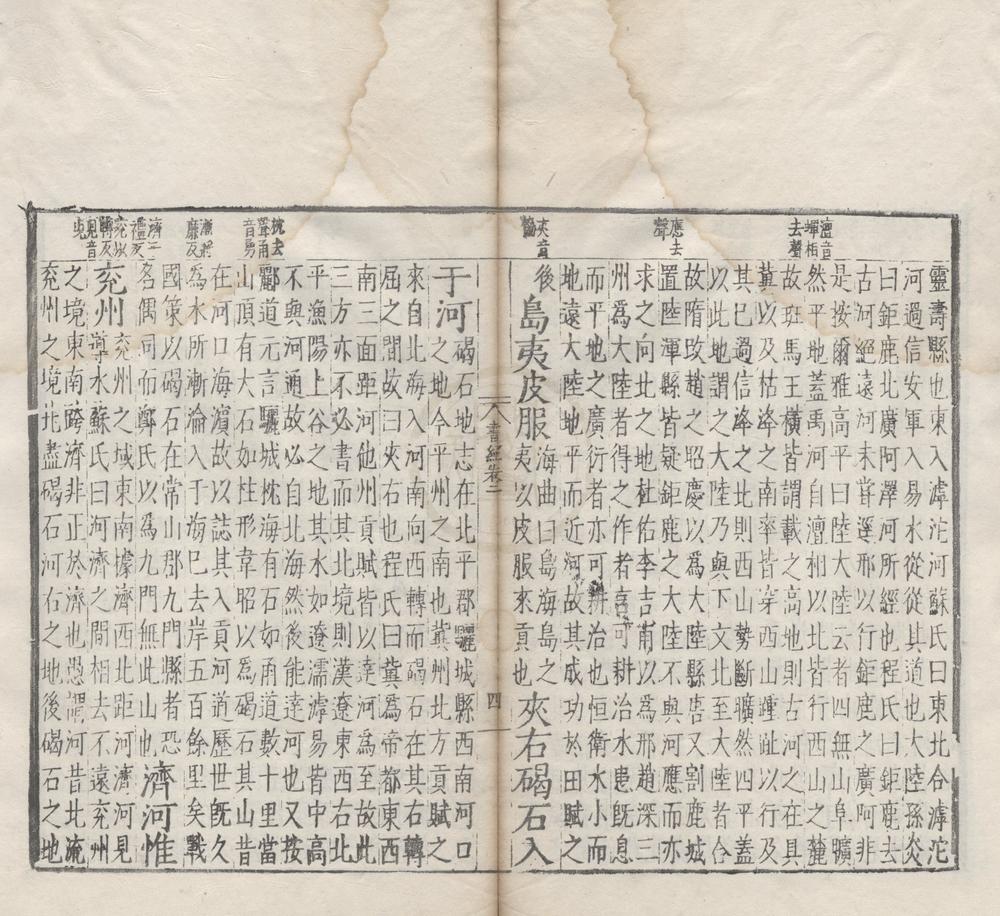 澶音
蟬相
去聲
應去
聲
夾音
靈壽縣也東入滹沱河蘇氏曰東北合滹沱
河過信安軍入易水從從其道也大陸孫炎
曰鉅鹿北廣阿澤河所經也程氏曰鉅鹿去
古河絕遠河未嘗逕邢以行鉅鹿之廣阿非
是按爾雅高平曰陸大陸云者四無山阜曠
然平地蓋禹河自澶相以北皆行西山之麓
故班馬王橫皆謂載之高地則古河之在具
冀以及枯洚之南率皆穿西山踵趾以行及
其已過信洚之北則西山勢斷曠然四平蓋
以此地謂之大陸乃與下文北至大陸者合
故隋改趙之昭慶以為大陸縣唐又割鹿城
置陸渾縣皆疑鉅鹿之大陸不與河應而亦
求之向北之地杜佑李吉甫以為邢趙深三
州為大陸者得之作者言可耕治水患既息
而平地之廣衍者亦可耕治也恒衛水小而
地遠大陸地平而近河故其成功於田賦之
後島夷皮服海曲曰島海島之夷以皮服來貢也夾右碣石入
書經卷二
四
抗去
聲甬
音勇
漸將
廉反
濟二
禮反
兗以
轉反
見音
于河碣石地志在北平郡驪城縣西南河口
之地今平州之南也冀州北方貢賦之
來自北海入河南向西轉而碣石在其右轉
屈之間故曰夾右也程氏曰冀為帝都東西
南三面距河他州貢賦皆以達河為至故此
三方亦不必書而其北境則漢遼東西右北
平漁陽上谷之地其水如遼濡滹易皆中高
不與河通故必自北海然後能達河也又按
酈道元言驪城枕海有石如甬道數十里當
山頂有大石如柱形韋昭以為碣石其山昔
在河口海濱故以誌其入貢河道歷世既久
為水所漸淪入于海已去岸五百餘里矣戰
國策以碣石在常山郡九門縣者恐
名偶同而鄭氏以為九門無此山也濟河惟
兗州兗州之域東南據濟西北距河濟河見
導水蘇氏曰河濟之間相去不遠兗州
之境東南跨濟非正於濟也愚謂河昔北流
兗州之境北盡碣石河右之地後碣石之地